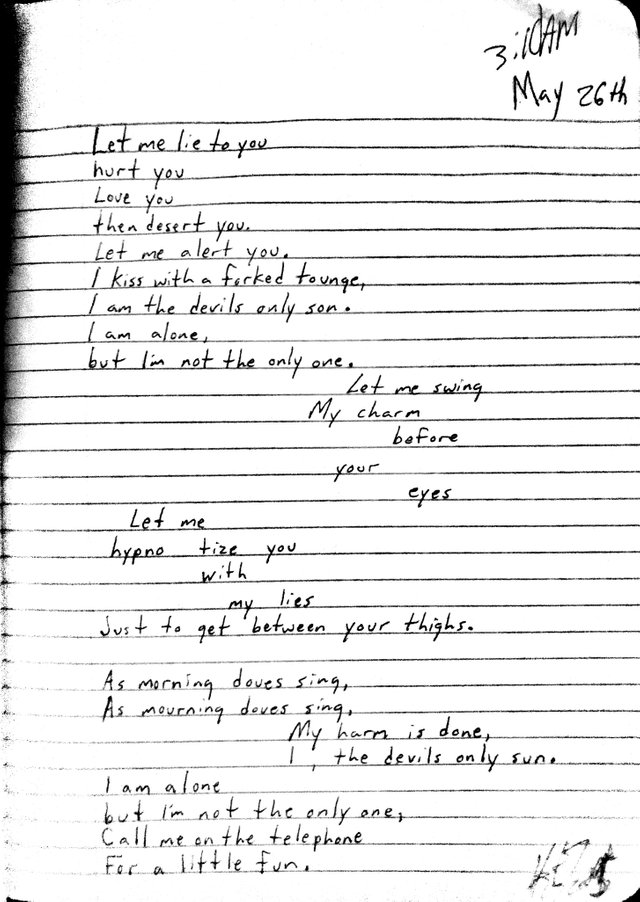 3:10AM
May 26th
Let me lie to you
hurt you
Love you
then desert you.
Let me alert you.
I kiss with a forked tounge,
I am the devils only son.
I am alone,
but I'm not the only one.
Let me swing
My charm
before
your
eyes
Let me
hypno tize you
with
my lies
Just to get between your thighs.
As morning doves sing,
As mourning doves sing,
My harm is done,
I, the devils only sun.
I am alone
but I'm not the only one,
Call me on the telephone
For a little fun.